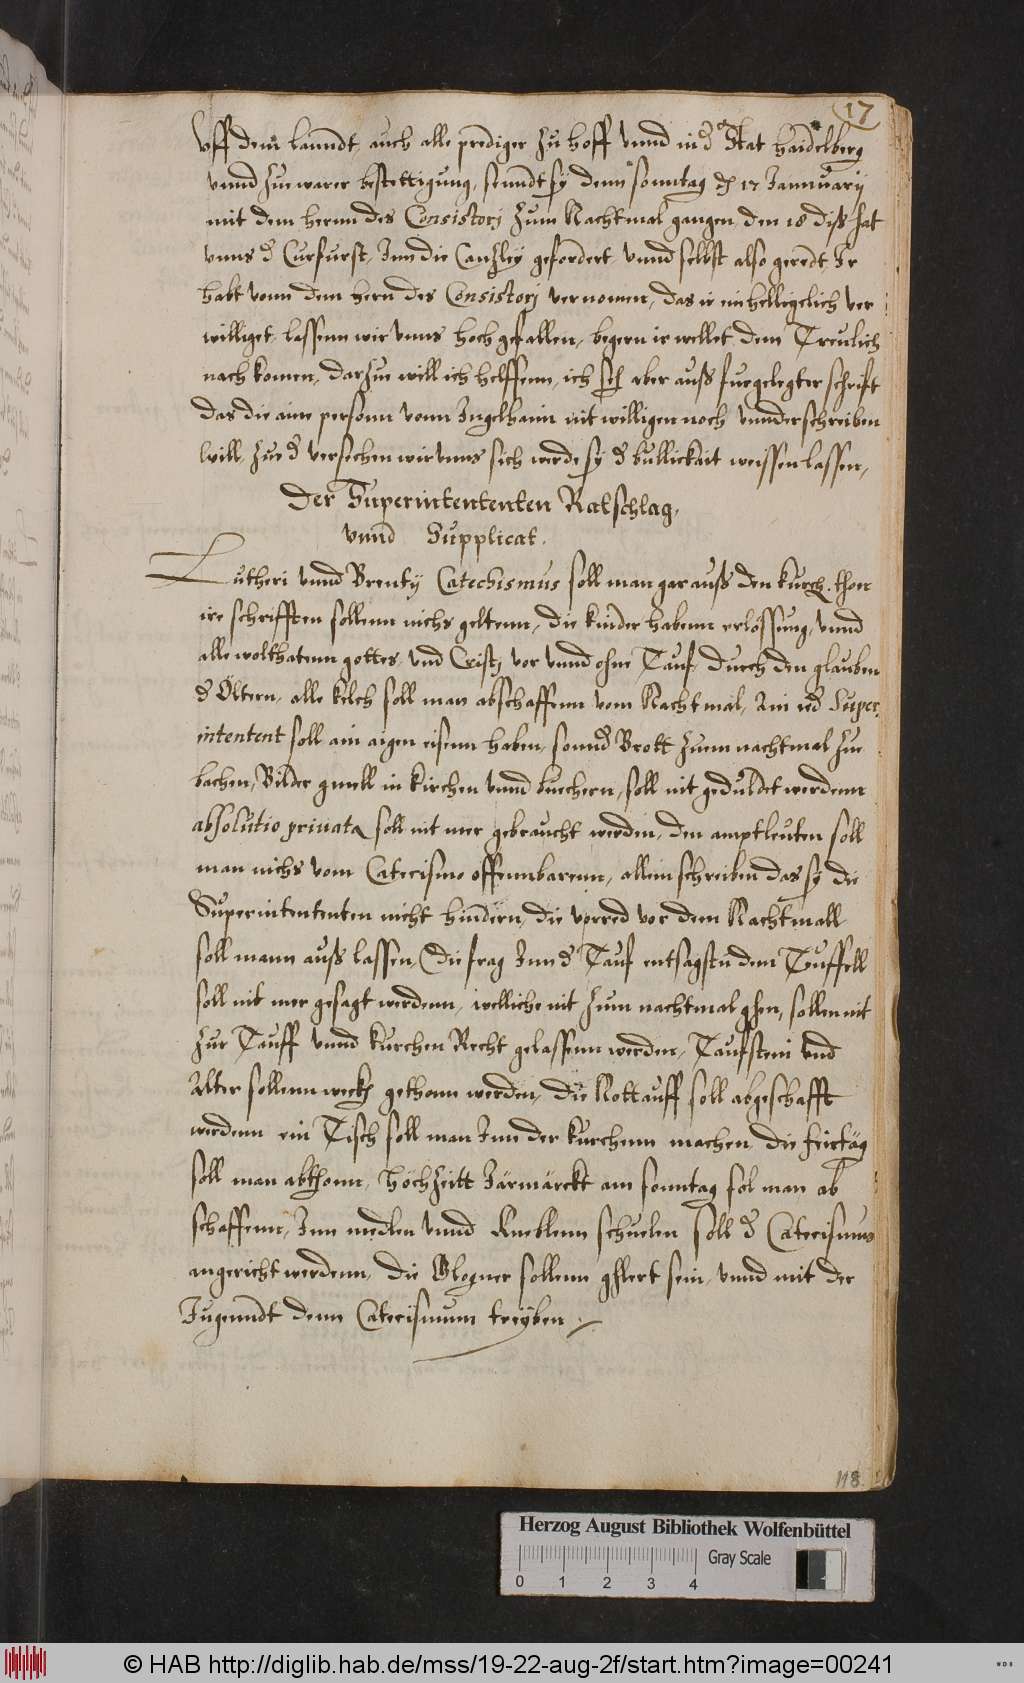 17
Uff dem lanndt, auch alle prediger zu hoff unnd in d Stat Haidelberg
unnd zue warer bestettigung, senndt sy denn sonntag d 17 Jannuarij
mit dem hernn des Consistorj zum Nachtmal gangen, den 18 diß hat
unns d Curfurst, Inn die Canzley gefordert, unnd selbst also geredt, Ir
habt vonn dem hern des Consistorj vernomen, das ir einhelligelich ver
williget, lassenn wir unns hoch gefallen, begern ir wellet dem Treulich
nach komen, darzue will ich helffenn, ich seh aber auß fuegelegter schrift
das die aine personn vonn Ingelhaim nit willigen noch unnderschreiben
will, zue d versechen wir unns sich werde sy d bullickait weissen lassen,
Der Superintententen Ratschlag,
unnd Supplicat.
Lutheri unnd Brentÿ Catechismus soll man gar auß den kurch. thon
ire schrifften sollenn nichs geltenn, die kinder habenn erlößung, unnd
alle wolthatenn gottes, und Cristj vor unnd ohne Tauf, durch den glauben
d Öltern, alle kelch soll man abschaffenn vom Nachtmal, Ain ied Super
intentent soll ain aigen eisenn haben, sonnd Brott zum nachtmal zue
bachen, Bilder gmell in kirchen unnd buechern, soll nit geduldet werdenn
absolutio priuata soll nit mer gebraucht werden, den amptleuten soll
man nichs vom Catecismo offennbarenn, allein schreiben das sy die
Superintententen nicht hindern, die vorred vor dem Nachtmall
soll mann auß lassen, Die frag Inn d Tauf entsagstu dem Teuffell
soll nit mer gesagt werdenn, welliche nit zum nachtmal ghen, sollen nit
zur Tauff unnd kurchen Recht gelassenn werden, Taufstein und
Alter sollenn weckh gethonn werden, die Nottauff soll abgeschafft
werdenn ein Tisch soll man Inn der kurchenn machen, die feirtäg
soll man abthonn, Hochzeitt Järmärckt am sonntag sol man ab
schaffenn, Inn medlen unnd Kneblenn schuelen soll d Catecismus
angericht werdenn, die Glogner sollenn ghlert sein, unnd mit der
Jugenndt denn Catecismum treyben
118.
Herzog August Bibliothek Wolfenbüttel
Gray Scale
0 1 2 3 4
© HAB http://diglib.hab.de/mss/19-22-aug-2f/start.htm?image=00241